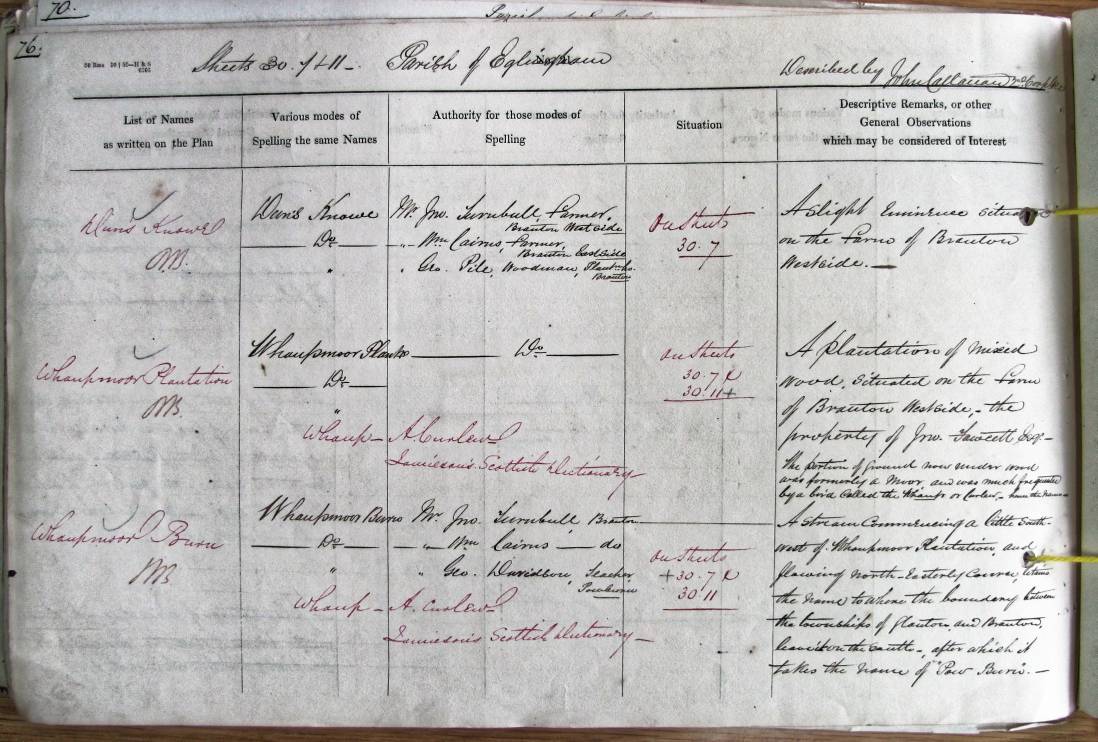 70.
76.
Sheets 30. 7 & 11 - Parish of Eglingham
Described by John Callanan
List of Names
as written on the Plan
Various modes of
Spelling the same Names
Authority for those modes of
Spelling
Situation
Descriptive Remarks, or other
General Observations
which may be considered of Interest
Duns Knowe
Duns Knowe
Do
"
Mr. Jno. Turnbull, Farmer,
Branton West Side
" Wm. Cairns, Farmer,
Branton East Side
" Geo. Pile, Woodman,
Branton
On Sheets
30.7
A slight Eminence situate
on the Farm of Branton
Westside. —
Whaupmoor Plantation
Whaupmoor Plantn
Do
"
Do
Whaup - A Curlew
Jamieson's Scottish Dictionary -
On Sheets
30.7 &
30.11 +
A plantation of mixed
wood, situated on the Farm
of Branton Westside, - the
property of Jno. Fawcett Esqr. -
The portion of ground now under wood
was formerly a Moor, and was much frequented
by a bird called the Whaup or Curlew, - hence the name
Whaupmoor Burn
Whaupmoor Burn
Do
"
Mr. Jno. Turnbull Branton
" Wm. Cairns — do
" Geo. Davidson, Teacher
Powburn
Whaup - A Curlew
Jamieson's Scottish Dictionary -
On Sheets
+ 30.7 &
30.11
A stream commencing a little South-
west of Whaupmoor Plantation and
flowing North-Easterly Course, retains
the name to where the boundary between
the townships of Glanton and Branton,
leave it on the south -, after which it
takes the name of "Pow Burn. -